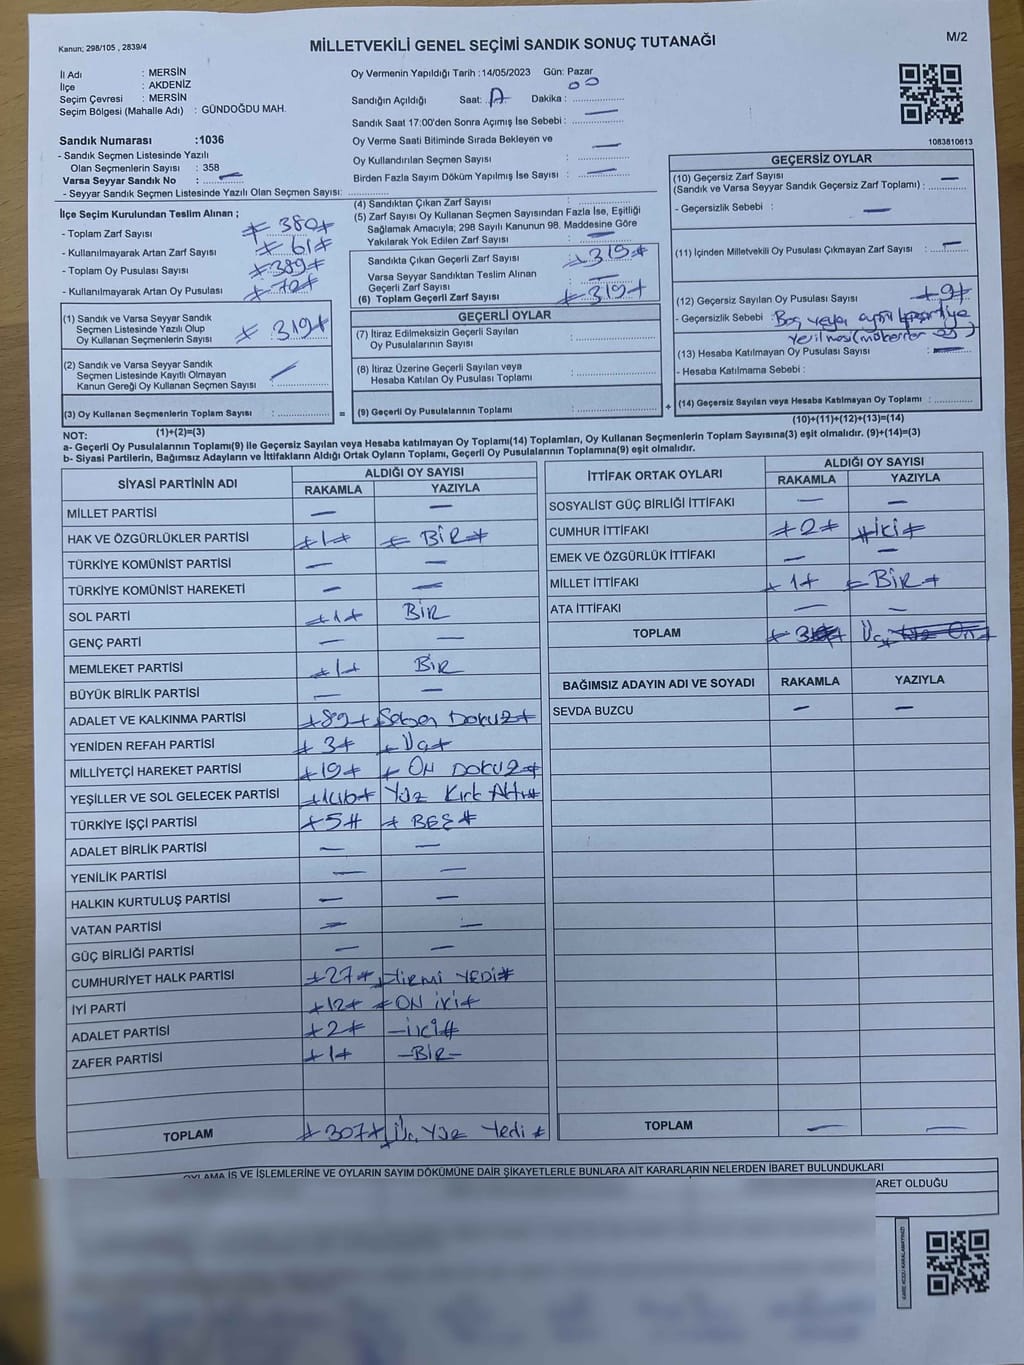 Kanun; 298/105 , 2839/4
MİLLETVEKİLİ GENEL SEÇİMİ SANDIK SONUÇ TUTANAĞI
M/2
İl Adı : MERSİN
İlçe : AKDENİZ
Seçim Çevresi : MERSİN
Seçim Bölgesi (Mahalle Adı) : GÜNDOĞDU MAH.
Sandık Numarası :1036
- Sandık Seçmen Listesinde Yazılı
Olan Seçmenlerin Sayısı : 358
Varsa Seyyar Sandık No : —
- Seyyar Sandık Seçmen Listesinde Yazılı Olan Seçmen Sayısı:
Oy Vermenin Yapıldığı Tarih :14/05/2023 Gün: Pazar
Sandığın Açıldığı Saat: Dakika : 00
Sandık Saat 17:00'den Sonra Açımış İse Sebebi : —
Oy Verme Saati Bitiminde Sırada Bekleyen ve
Oy Kullandırılan Seçmen Sayısı : —
Birden Fazla Sayım Döküm Yapılmış İse Sayısı : —
1083810613
İlçe Seçim Kurulundan Teslim Alınan ;
- Toplam Zarf Sayısı 380
- Kullanılmayarak Artan Zarf Sayısı 61
- Toplam Oy Pusulası Sayısı 389
- Kullanılmayarak Artan Oy Pusulası 70
(1) Sandık ve Varsa Seyyar Sandık
Seçmen Listesinde Yazılı Olup
Oy Kullanan Seçmenlerin Sayısı : 319
(2) Sandık ve Varsa Seyyar Sandık
Seçmen Listesinde Kayıtlı Olmayan
Kanun Gereği Oy Kullanan Seçmen Sayısı : —
(3) Oy Kullanan Seçmenlerin Toplam Sayısı :
(1)+(2)=(3)
(4) Sandıktan Çıkan Zarf Sayısı :
(5) Zarf Sayısı Oy Kullanan Seçmen Sayısından Fazla İse, Eşitliği
Sağlamak Amacıyla; 298 Sayılı Kanunun 98. Maddesine Göre
Yakılarak Yok Edilen Zarf Sayısı : —
Sandıkta Çıkan Geçerli Zarf Sayısı 319
Varsa Seyyar Sandıktan Teslim Alınan
Geçerli Zarf Sayısı : —
(6) Toplam Geçerli Zarf Sayısı 319
GEÇERLİ OYLAR
(7) İtiraz Edilmeksizin Geçerli Sayılan
Oy Pusulalarının Sayısı :
(8) İtiraz Üzerine Geçerli Sayılan veya
Hesaba Katılan Oy Pusulası Toplamı :
=
(9) Geçerli Oy Pusulalarının Toplamı :
+
GEÇERSİZ OYLAR
(10) Geçersiz Zarf Sayısı
(Sandık ve Varsa Seyyar Sandık Geçersiz Zarf Toplamı) : —
- Geçersizlik Sebebi : —
(11) İçinden Milletvekili Oy Pusulası Çıkmayan Zarf Sayısı : —
(12) Geçersiz Sayılan Oy Pusulası Sayısı 9
- Geçersizlik Sebebi Boş veya ayrı partiye
verilmesi (mükerrer oy)
(13) Hesaba Katılmayan Oy Pusulası Sayısı : —
- Hesaba Katılmama Sebebi :
(14) Geçersiz Sayılan veya Hesaba Katılmayan Oy Toplamı :
(10)+(11)+(12)+(13)=(14)
NOT:
a- Geçerli Oy Pusulalarının Toplamı(9) ile Geçersiz Sayılan veya Hesaba katılmayan Oy Toplamı(14) Toplamları, Oy Kullanan Seçmenlerin Toplam Sayısına(3) eşit olmalıdır. (9)+(14)=(3)
b- Siyasi Partilerin, Bağımsız Adayların ve İttifakların Aldığı Ortak Oyların Toplamı, Geçerli Oy Pusulalarının Toplamına(9) eşit olmalıdır.
SİYASİ PARTİNİN ADI
ALDIĞI OY SAYISI
RAKAMLA YAZIYLA
MİLLET PARTİSİ — —
HAK VE ÖZGÜRLÜKLER PARTİSİ 1 BİR
TÜRKİYE KOMÜNİST PARTİSİ — —
TÜRKİYE KOMÜNİST HAREKETİ — —
SOL PARTİ 1 BİR
GENÇ PARTİ — —
MEMLEKET PARTİSİ 1 BİR
BÜYÜK BİRLİK PARTİSİ — —
ADALET VE KALKINMA PARTİSİ 89 Seksen DOKUZ
YENİDEN REFAH PARTİSİ 3 Üç
MİLLİYETÇİ HAREKET PARTİSİ 19 ON DOKUZ
YEŞİLLER VE SOL GELECEK PARTİSİ 146 Yüz Kırk Altı
TÜRKİYE İŞÇİ PARTİSİ 5 BEŞ
ADALET BİRLİK PARTİSİ — —
YENİLİK PARTİSİ — —
HALKIN KURTULUŞ PARTİSİ — —
VATAN PARTİSİ — —
GÜÇ BİRLİĞİ PARTİSİ — —
CUMHURİYET HALK PARTİSİ 27 YİRMİ YEDİ
İYİ PARTİ 12 ON İKİ
ADALET PARTİSİ 2 -İKİ
ZAFER PARTİSİ 1 -BİR-
TOPLAM 307 Üç Yüz Yedi
İTTİFAK ORTAK OYLARI
ALDIĞI OY SAYISI
RAKAMLA YAZIYLA
SOSYALİST GÜÇ BİRLİĞİ İTTİFAKI — —
CUMHUR İTTİFAKI 2 İKİ
EMEK VE ÖZGÜRLÜK İTTİFAKI — —
MİLLET İTTİFAKI 1 BİR
ATA İTTİFAKI — —
TOPLAM 3 Üç
BAĞIMSIZ ADAYIN ADI VE SOYADI RAKAMLA YAZIYLA
SEVDA BUZCU — —
TOPLAM — —
OYLAMA İŞ VE İŞLEMLERİNE VE OYLARIN SAYIM DÖKÜMÜNE DAİR ŞİKAYETLERLE BUNLARA AİT KARARLARIN NELERDEN İBARET BULUNDUKLARI
ARET OLDUĞU